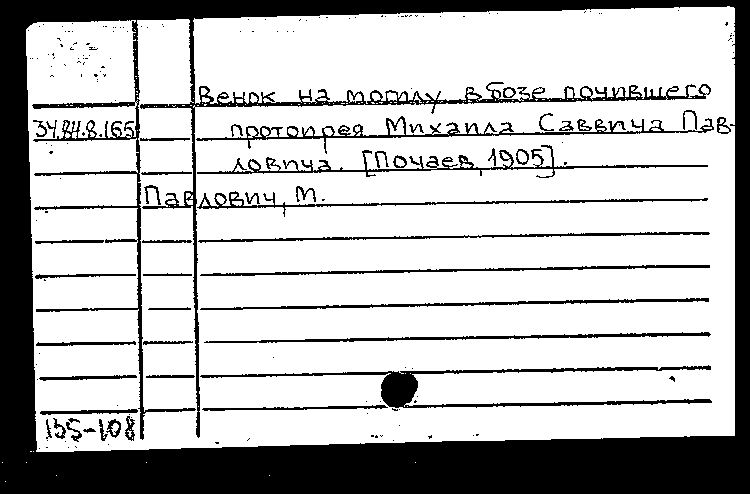 Венок на могилу в бозе почившего
34.84.8.165 протоирея Михаила Саввича Пав-
ловича. [Почаев, 1905].
Павлович, М.
155-108